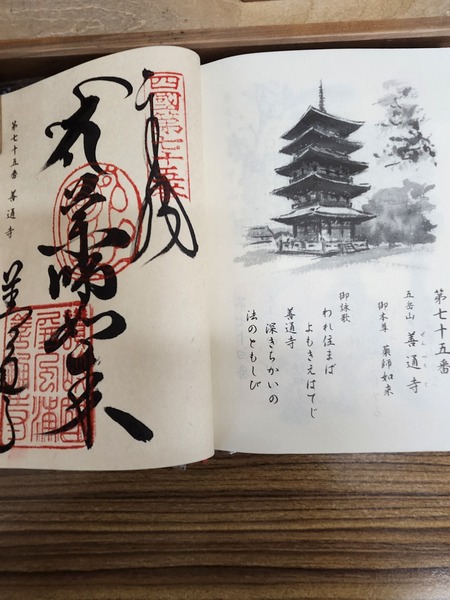 第七十五番
五岳山 善通寺
ぜんつうじ
御本尊 薬師如来
御詠歌
われ住まば
よもきえはてじ
善通寺
深きちかいの
法のともしび
四國第七十五番
奉拝
薬師如来
善通寺
第七十五番 善通寺